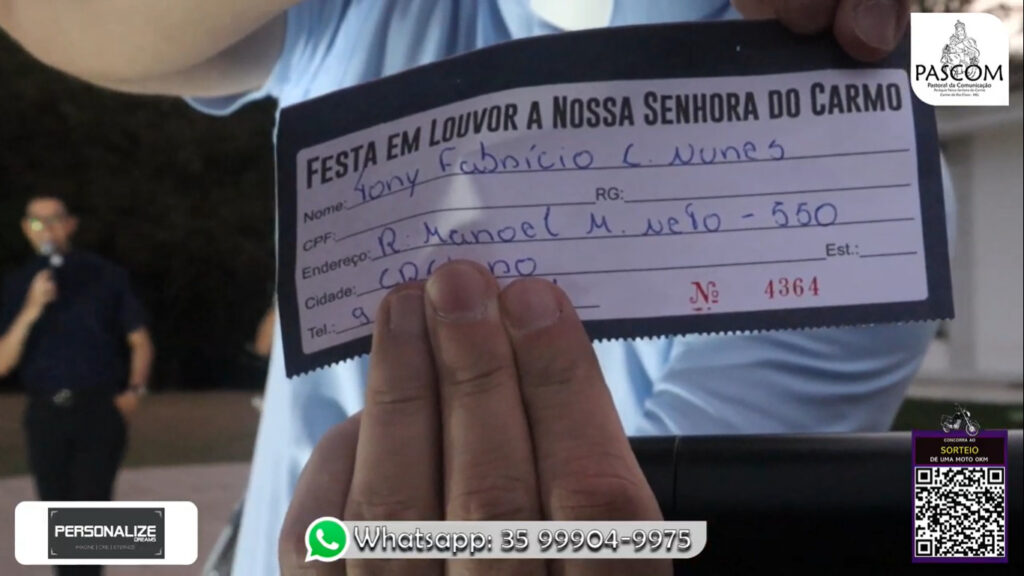 PASCOM
Pastoral da Comunicação
FESTA EM LOUVOR A NOSSA SENHORA DO CARMO
Nome: Tony Fabrício C. Nunes
CPF: RG:
Endereço: R. Manoel M. Neto - 550
Cidade: Est.:
Tel.: 9
Nº 4364
CONCORRA AO
SORTEIO
DE UMA MOTO 0KM
PERSONALIZE
DREAMS
Whatsapp: 35 99904-9975